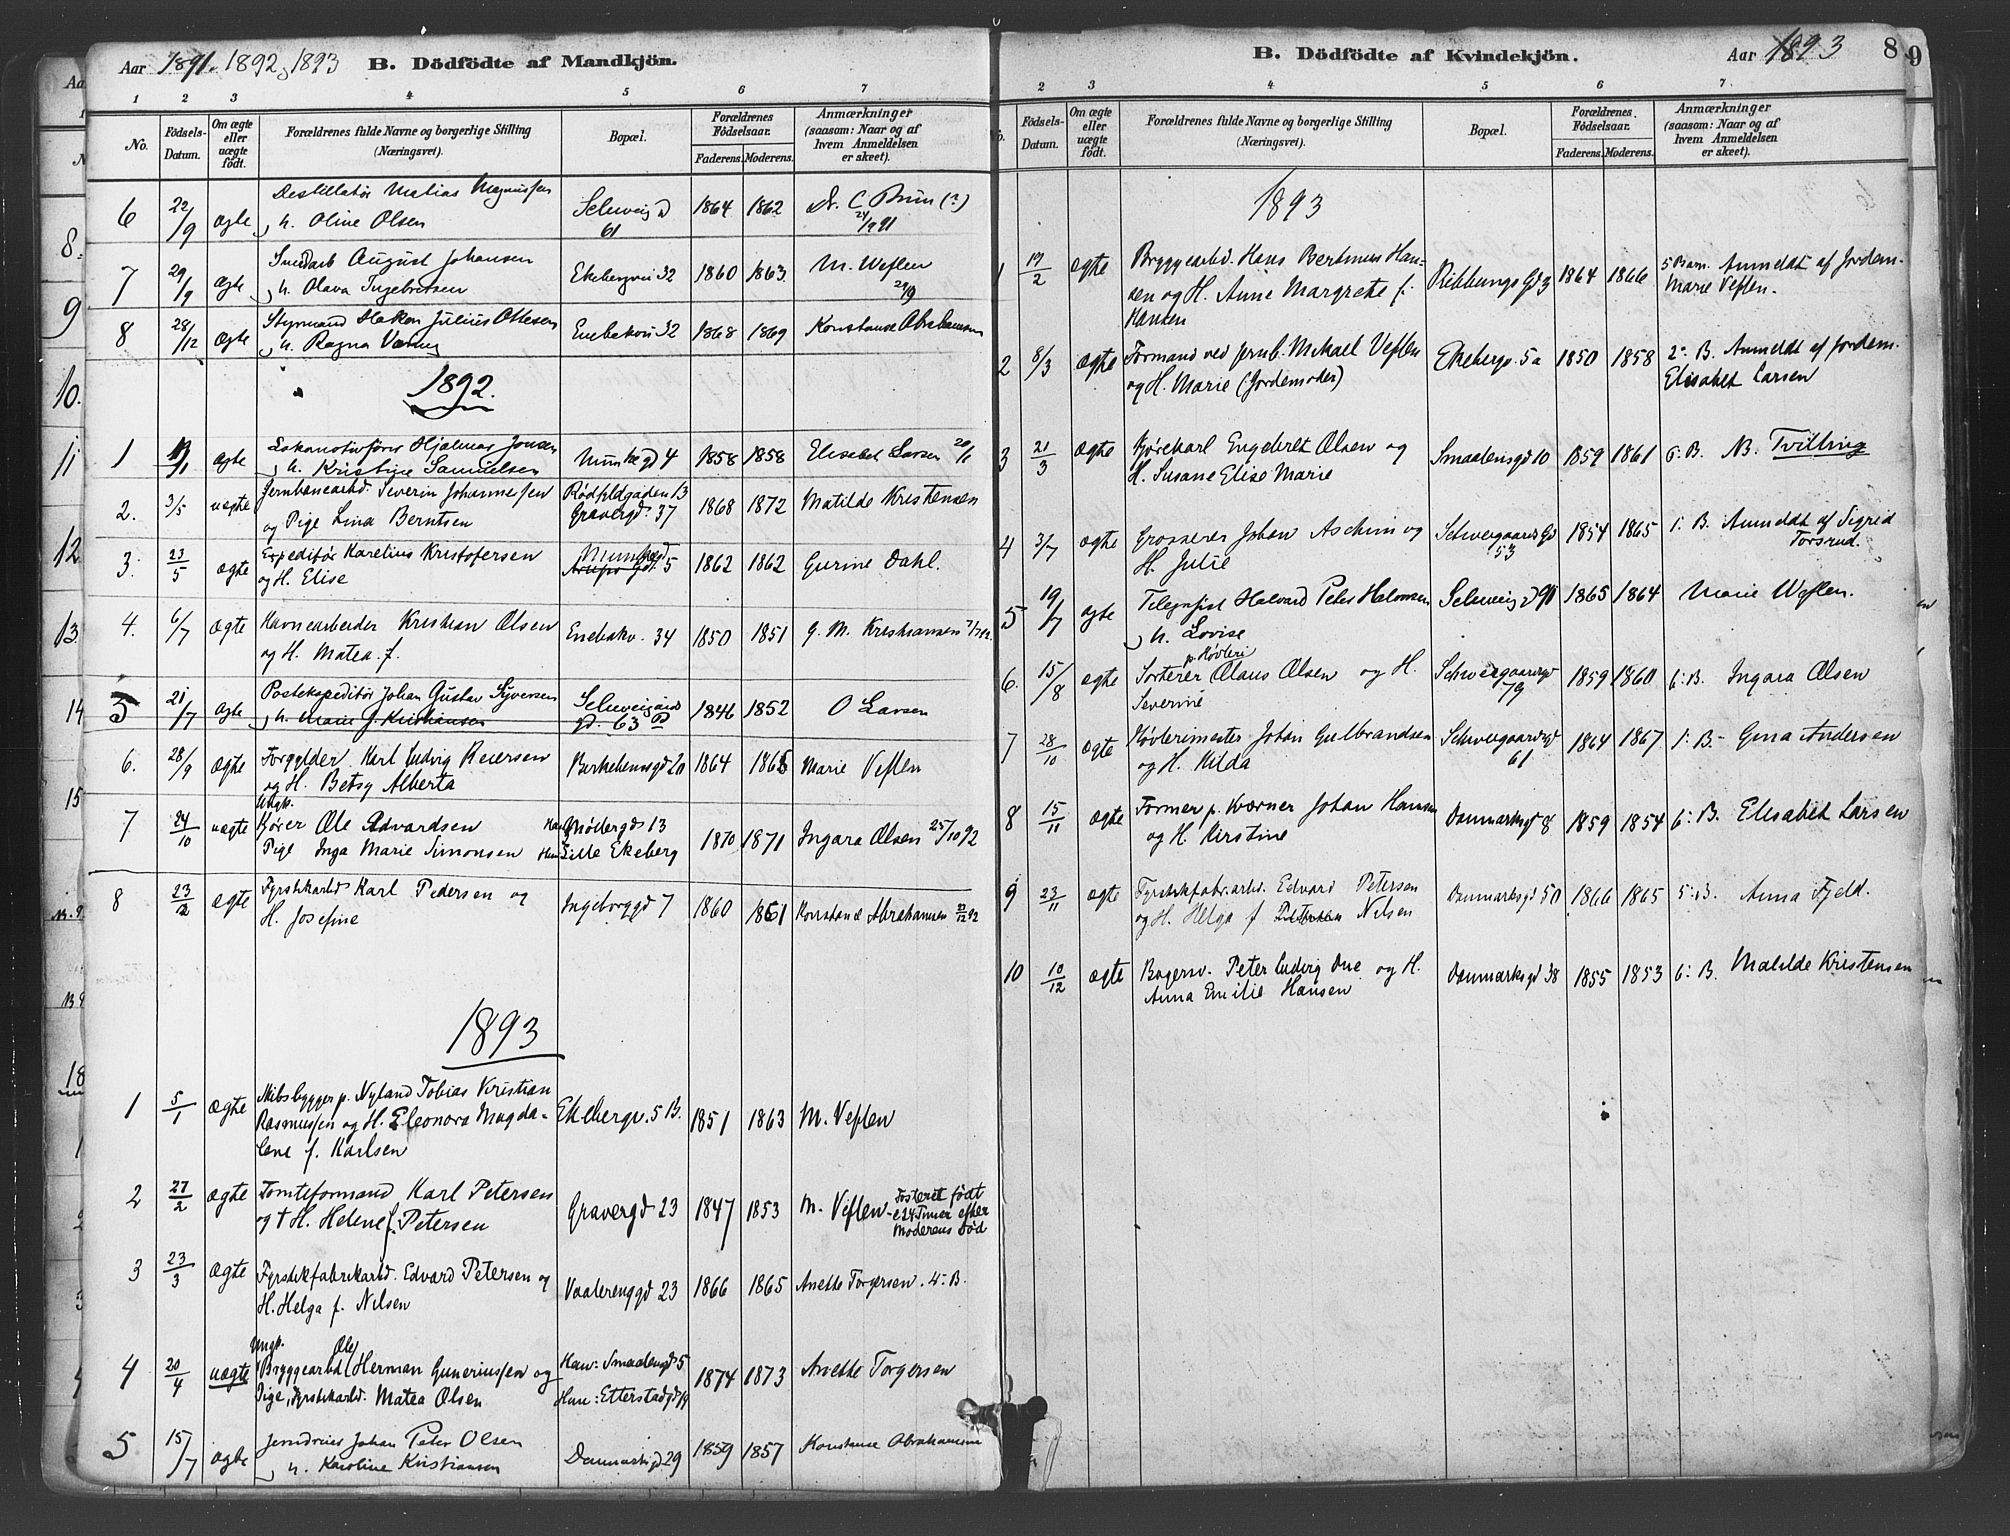 Aar 1891. 1892, 1893 B. Dödfödte af Mandkjön.
1 2 3 4 5 6 7
No. Födsels-Datum. Om ægte eller uægte födt. Forældrenes fulde Navne og borgerlige Stilling (Næringsvei). Bopæl. Forældrenes Födselsaar. Faderens. Moderens. Anmærkninger (saasom: Naar og af hvem Anmeldelsen er skeet).
6 22/9 ægte Destillatør Matias Magnussen 1864 1862 Dr. C. Bruun (?)
o. h. Oline Olsen Schweig gd 61 24/9 91
7 29/9 ægte August Johansen Ekebergvei 32 1860 1863 M. Veflen
o. h. Olava Ingebretsen 29/9
8 28/12 ægte Styrmand Hakon Julius Ottesen Enebakvei 32 1868 1869 Konstanse Abrahamsen
o. h. Ragna
1892.
1 ægte Lokomotivfører Hjalmar Jonsen Munkegd 4 1858 1858 Elisabet Larsen 20/1
o. h. Kristine Samuelsen
2. 3/5 uægte Jernbanearbd. Severin Johannessen Rødfyldgaden 13 1868 1872 Matilde Kristensen
og Pige Lina Berntsen Gravergd. 37
3. 23/5 ægte Expeditør Karelius Kristofersen Munkegd 5 1862 1862 Gurine Dahl.
og H. Elise
4. 6/7 ægte Havnearbeider Kristian Olsen Enebakv. 34 1850 1851 G. M. Kristiansen
og H. Matea f.
5 21/7 ægte Postekspeditør Johan Gustav Syversen Schweigaards 1846 1852 O Larsen
o. h. Marie f. Kristiansen gd. 63 B
6. 28/9 ægte Forgylder Karl Ludvig Reiersen Birkebeinergd 20 1864 1865 Marie Veflen
og H. Betsy Alberta
7 24/10 uægte Ungk. Kjører Ole Edvardsen Han: Mødergd 13 1870 1871 Ingara Olsen 25/10 92
Pige Inga Marie Simonsen Hun: Lille Ekeberg
8 23/2 ægte Fyrstikarbd Karl Pedersen og Ingeborggd 7 1860 1861 Konstanse Abrahamsen 23/12 92
H. Josefine
1893
1 5/1 ægte Skibsbygger p. Nyland Tobias Kristian Ekebergv. 5 B. 1851 1863 M. Veflen
Rasmussen og H. Eleonora Magda-
lene f. Karlsen
2 27/2 ægte Tomteformand Karl Petersen Gravergd 23 1847 1853 M. Veflen - Fosteret født
og † H. Helene f. Petersen c 24 Timer efter
Moderens Død
3 23/3 ægte Fyrstikfabrikarbd. Edvard Petersen og Vaalerenggd 23 1866 1865 Anette Torgersen. 4: B.
H. Helga f. Nilsen
4 20/4 uægte Ungk. Bryggearbd Ole Herman Gunerius sen og Han: Smaalensgd 5 1874 1873 Anette Torgersen
Pige, Fyrstikarbd. Matea Olsen Hun: Etterstadgd 19
5 15/7 ægte Jerndreier Johan Peter Olsen Danmarksgd 29 1859 1857 Konstanse Abrahamsen
o. h. Karoline Kristiansen
B. Dödfödte af Kvindekjön. Aar 1893 8 9
2 3 4 5 6 7
Födsels-Datum. Om ægte eller uægte födt. Forældrenes fulde Navne og borgerlige Stilling (Næringsvei). Bopæl. Forældrenes Födselsaar. Faderens. Moderens. Anmærkninger (saasom: Naar og af hvem Anmeldelsen er skeet).
1893
1 19/2 ægte Bryggearbd. Hans Bertinius Han- Ribbungs Gd 3 1864 1866 5 Barn. Anmeldt af Jordem.
sen og H. Anne Margrete f. Marie Veflen.
Hansen
2 8/3 ægte Formand ved Jernb. Mikael Veflen Ekebergv. 5a 1850 1858 2: B. Anmeldt af Jordem.
og H. Marie (Jordemoder) Elisabet Larsen
3 21/3 ægte Kjørekarl Engebret Olsen og Smaalensgd 10 1859 1861 6: B. NB. Tvilling
H. Susane Elise Marie
4 3/7 ægte Grosserer Johan Aschim og Schweigaards Gd 53 1854 1865 1: B. Anmeldt af Sigrid
H. Julie Torsrud.
5 19/7 ægte Telegrafist Halvard Peter Halvorsen Schweig gd 91 1865 1864 Marie Veflen.
o. h. Lovise
6. 15/8 ægte Sorterer p. Høvleri Olaus Olsen og H. Schweigaardsgd 79 1859 1860 6: B. Ingara Olsen
Severine
7 28/10 ægte Høvlerimester Johan Gulbrandsen Schweigaardsgd 61 1864 1867 1: B. Gina Andersen
og H. Hilda
8 15/11 ægte Former p. Kværner Johan Hansen Danmarksgd 8 1859 1854 6: B. Elisabet Larsen
og H. Kirstine
9 23/11 ægte Fyrstikfabr.arbd. Edvard Petersen Danmarksgd 50 1866 1865 5: B. Anna Fjeld.
og H. Helga f. Petersen Nilsen
10 10/12 ægte Bagersv. Peter Ludvig Due og H. Danmarksgd 38 1855 1853 6: B. Matilde Kristensen
Anna Emilie Hansen